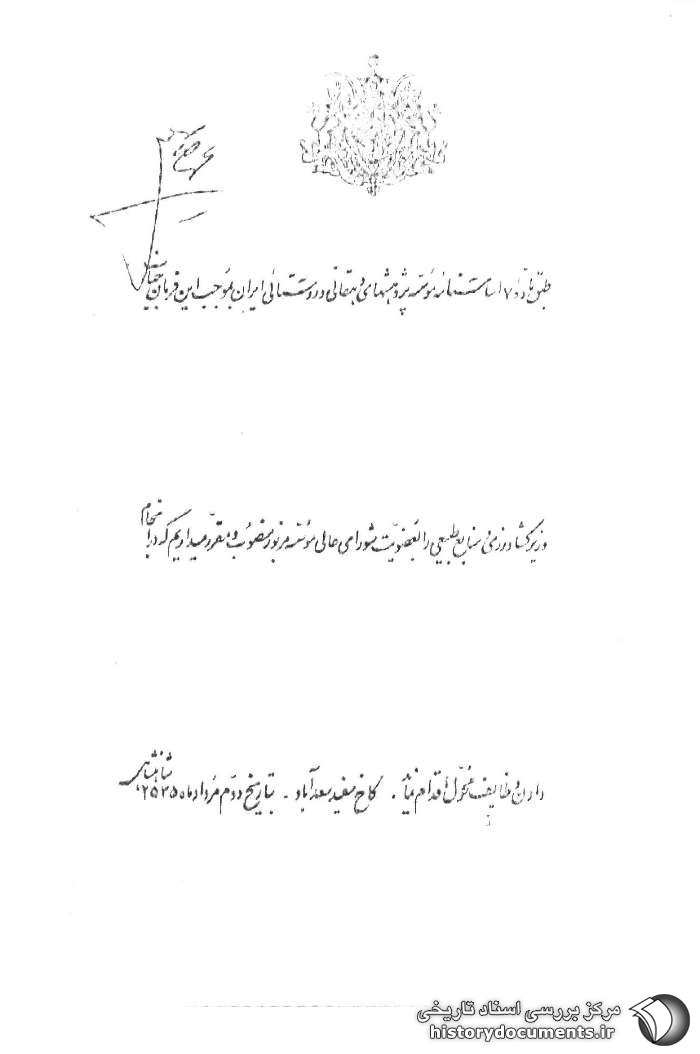 طبق ماده ۷ اساسنامه مؤسسه پژوهشهای دهقانی و روستائی ایران بموجب این فرمان جناب
وزیر کشاورزی و منابع طبیعی را بعضویت شورای عالی مؤسسه مزبور منصوب و مقرر میداریم که در انجام
دادن وظایف محول اقدام نماید . کاخ سفید سعدآباد - بتاریخ دوم مرداد ماه ۲۵۳۵ شاهنشاهی
مرکز بررسی اسناد تاریخی
historydocuments.ir